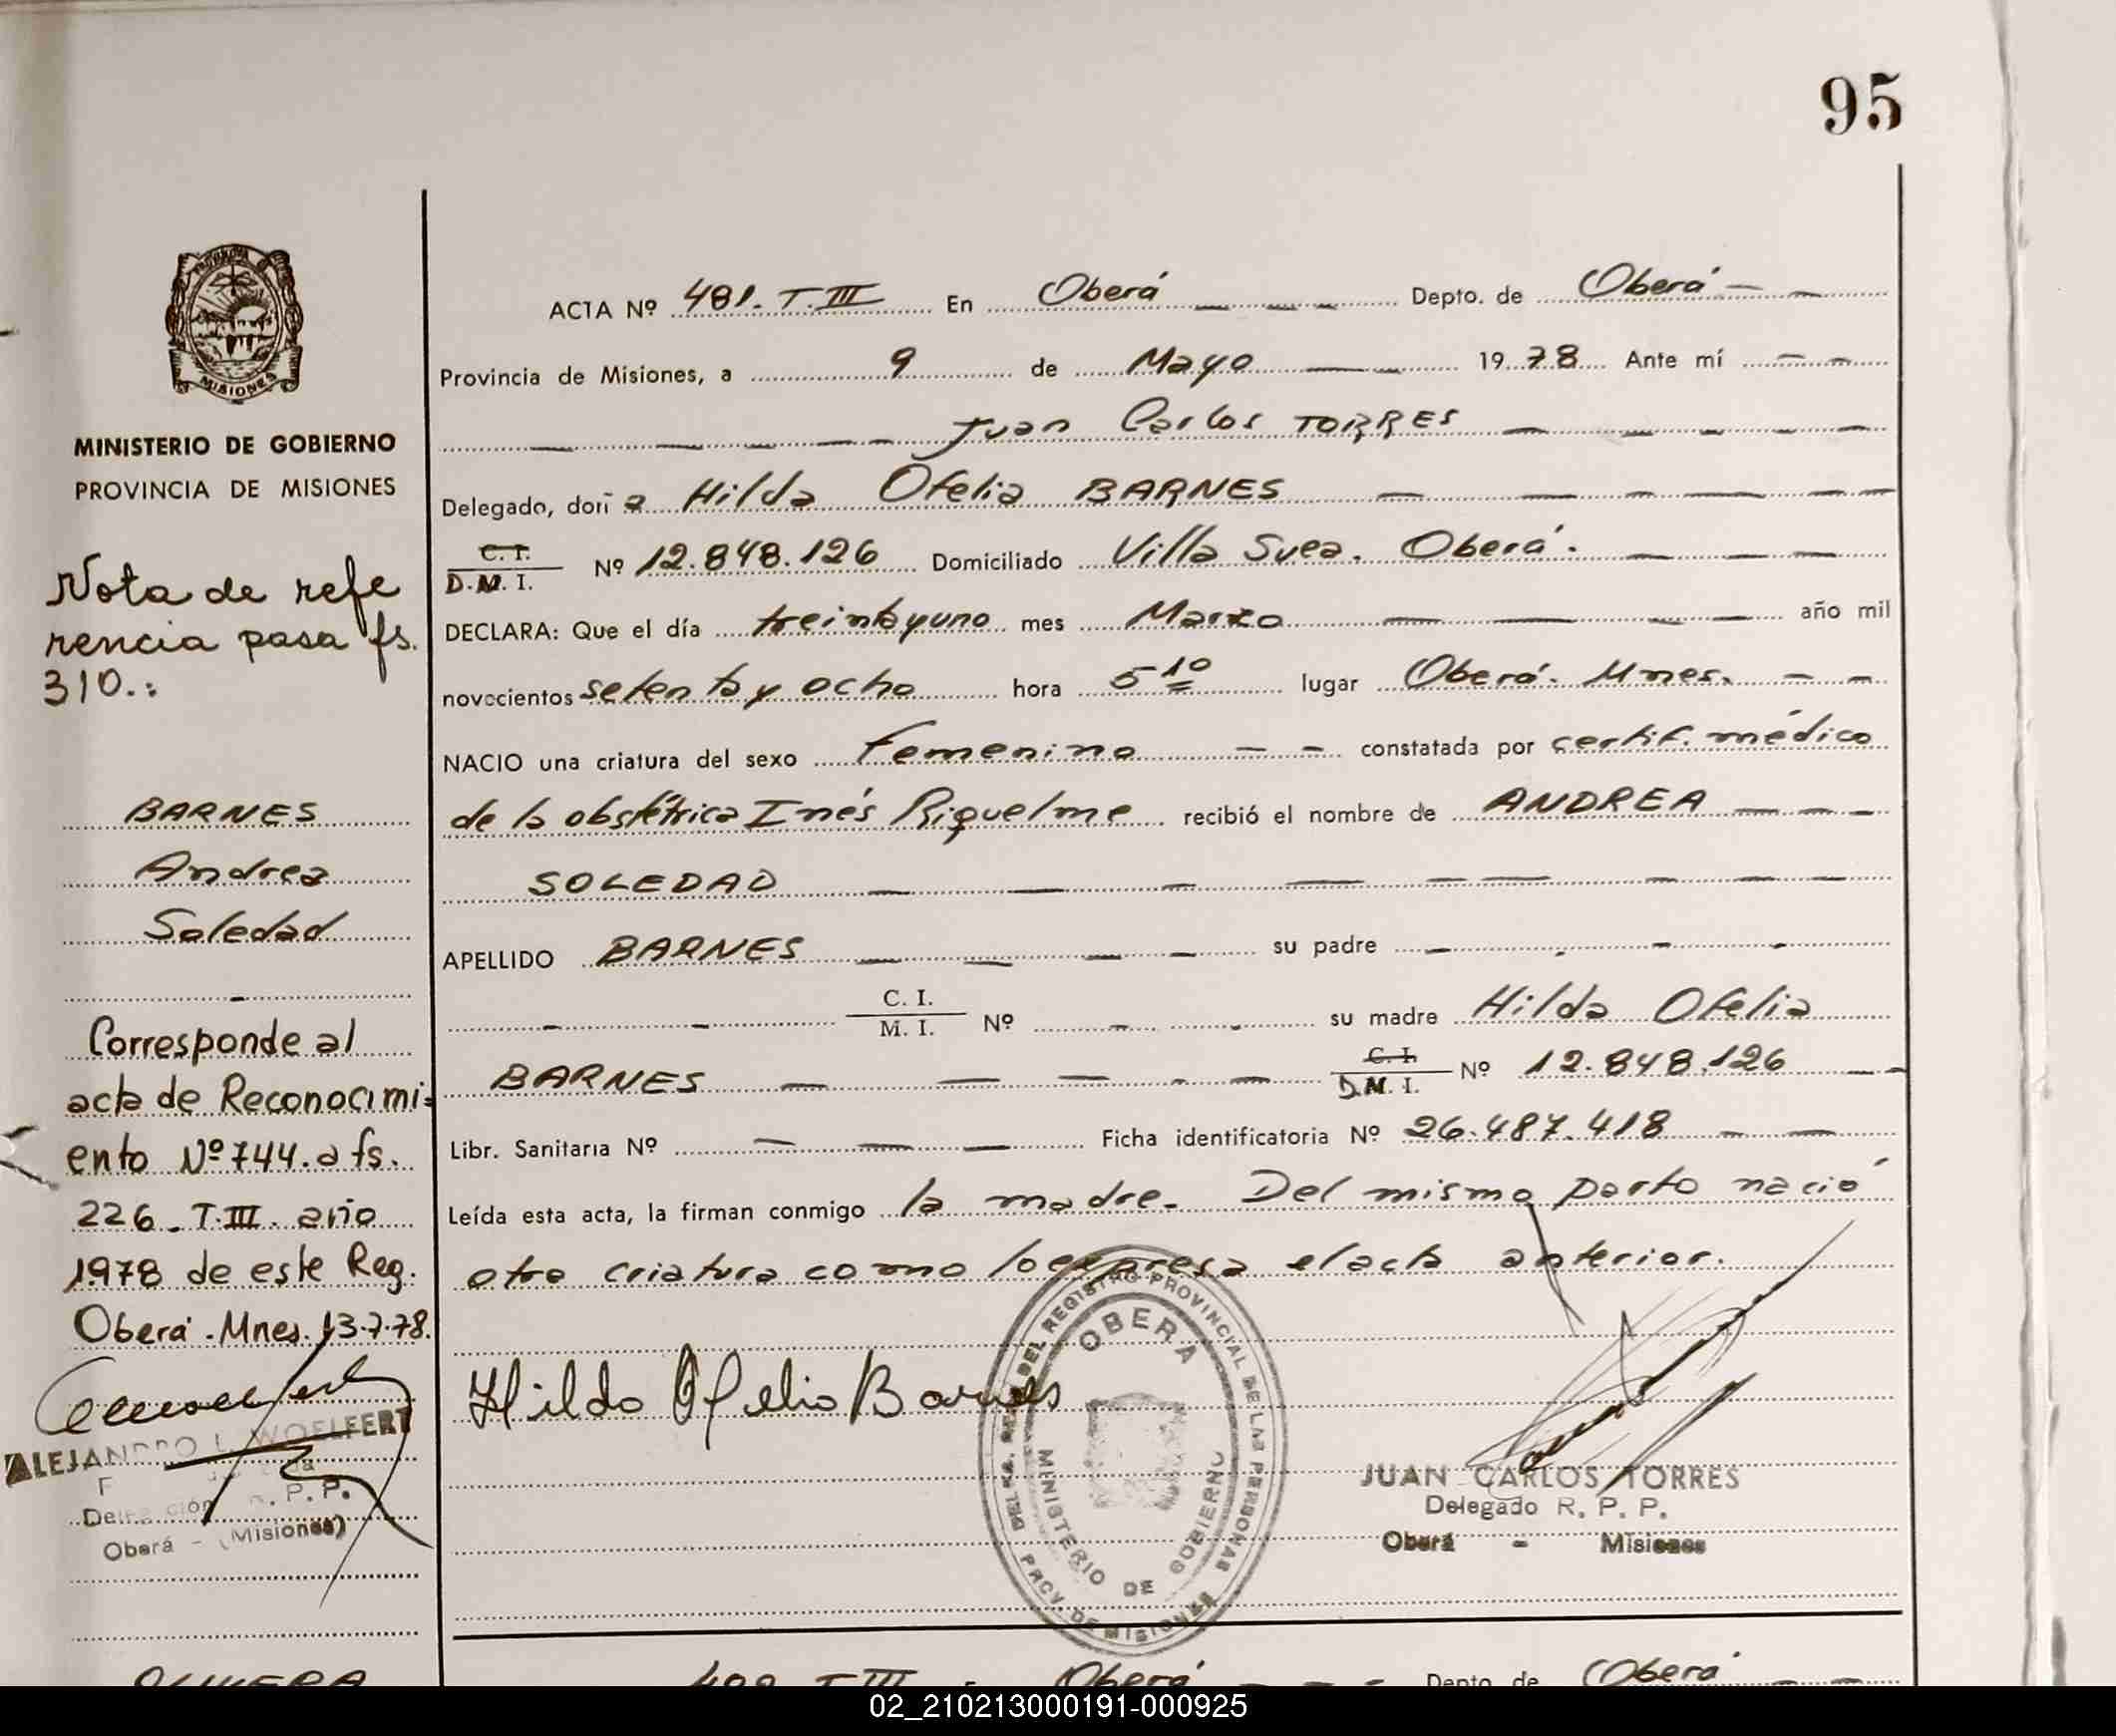 95
PROVINCIA DE
MISIONES
MINISTERIO DE GOBIERNO
PROVINCIA DE MISIONES
Nota de refe
rencia pasa fs.
310.:
BARNES
Andrea
Soledad
Corresponde al
acta de Reconocimi-
ento Nº 744. a fs.
226. T.III. año
1978 de este Reg.
Oberá. Mnes. 13.7.78.
ALEJANDRO L. WOELFERT
R. P. P.
Oberá - (Misiones)
ACTA Nº 481. T. III En Oberá Depto. de Oberá
Provincia de Misiones, a 9 de Mayo 1978 Ante mí
Juan Carlos TORRES
Delegado, doña Hilda Ofelia BARNES
C. I.
D.M. I. Nº 12.848.126 Domiciliado Villa Svea. Oberá.
DECLARA: Que el día treinta y uno mes Marzo año mil
novecientos setenta y ocho hora 5 10 lugar Oberá. Mnes.
NACIO una criatura del sexo Femenino constatada por certif. médico
de la obstétrica Inés Riquelme recibió el nombre de ANDREA
SOLEDAD
APELLIDO BARNES su padre
C. I.
M. I. Nº su madre Hilda Ofelia
BARNES C. I.
D.M. I. Nº 12.848.126
Libr. Sanitaria Nº Ficha identificatoria Nº 26.487.418
Leída esta acta, la firman conmigo la madre. Del mismo parto nació
otra criatura como lo expresa el acta anterior.
Hilda Ofelia Barnes
DEL REGISTRO PROVINCIAL DE LAS PERSONAS
OBERA
MINISTERIO DE GOBIERNO
PROV. DE MISIONES
JUAN CARLOS TORRES
Delegado R. P. P.
Oberá - Misiones
Oberá Depto de Oberá
02_210213000191-000925